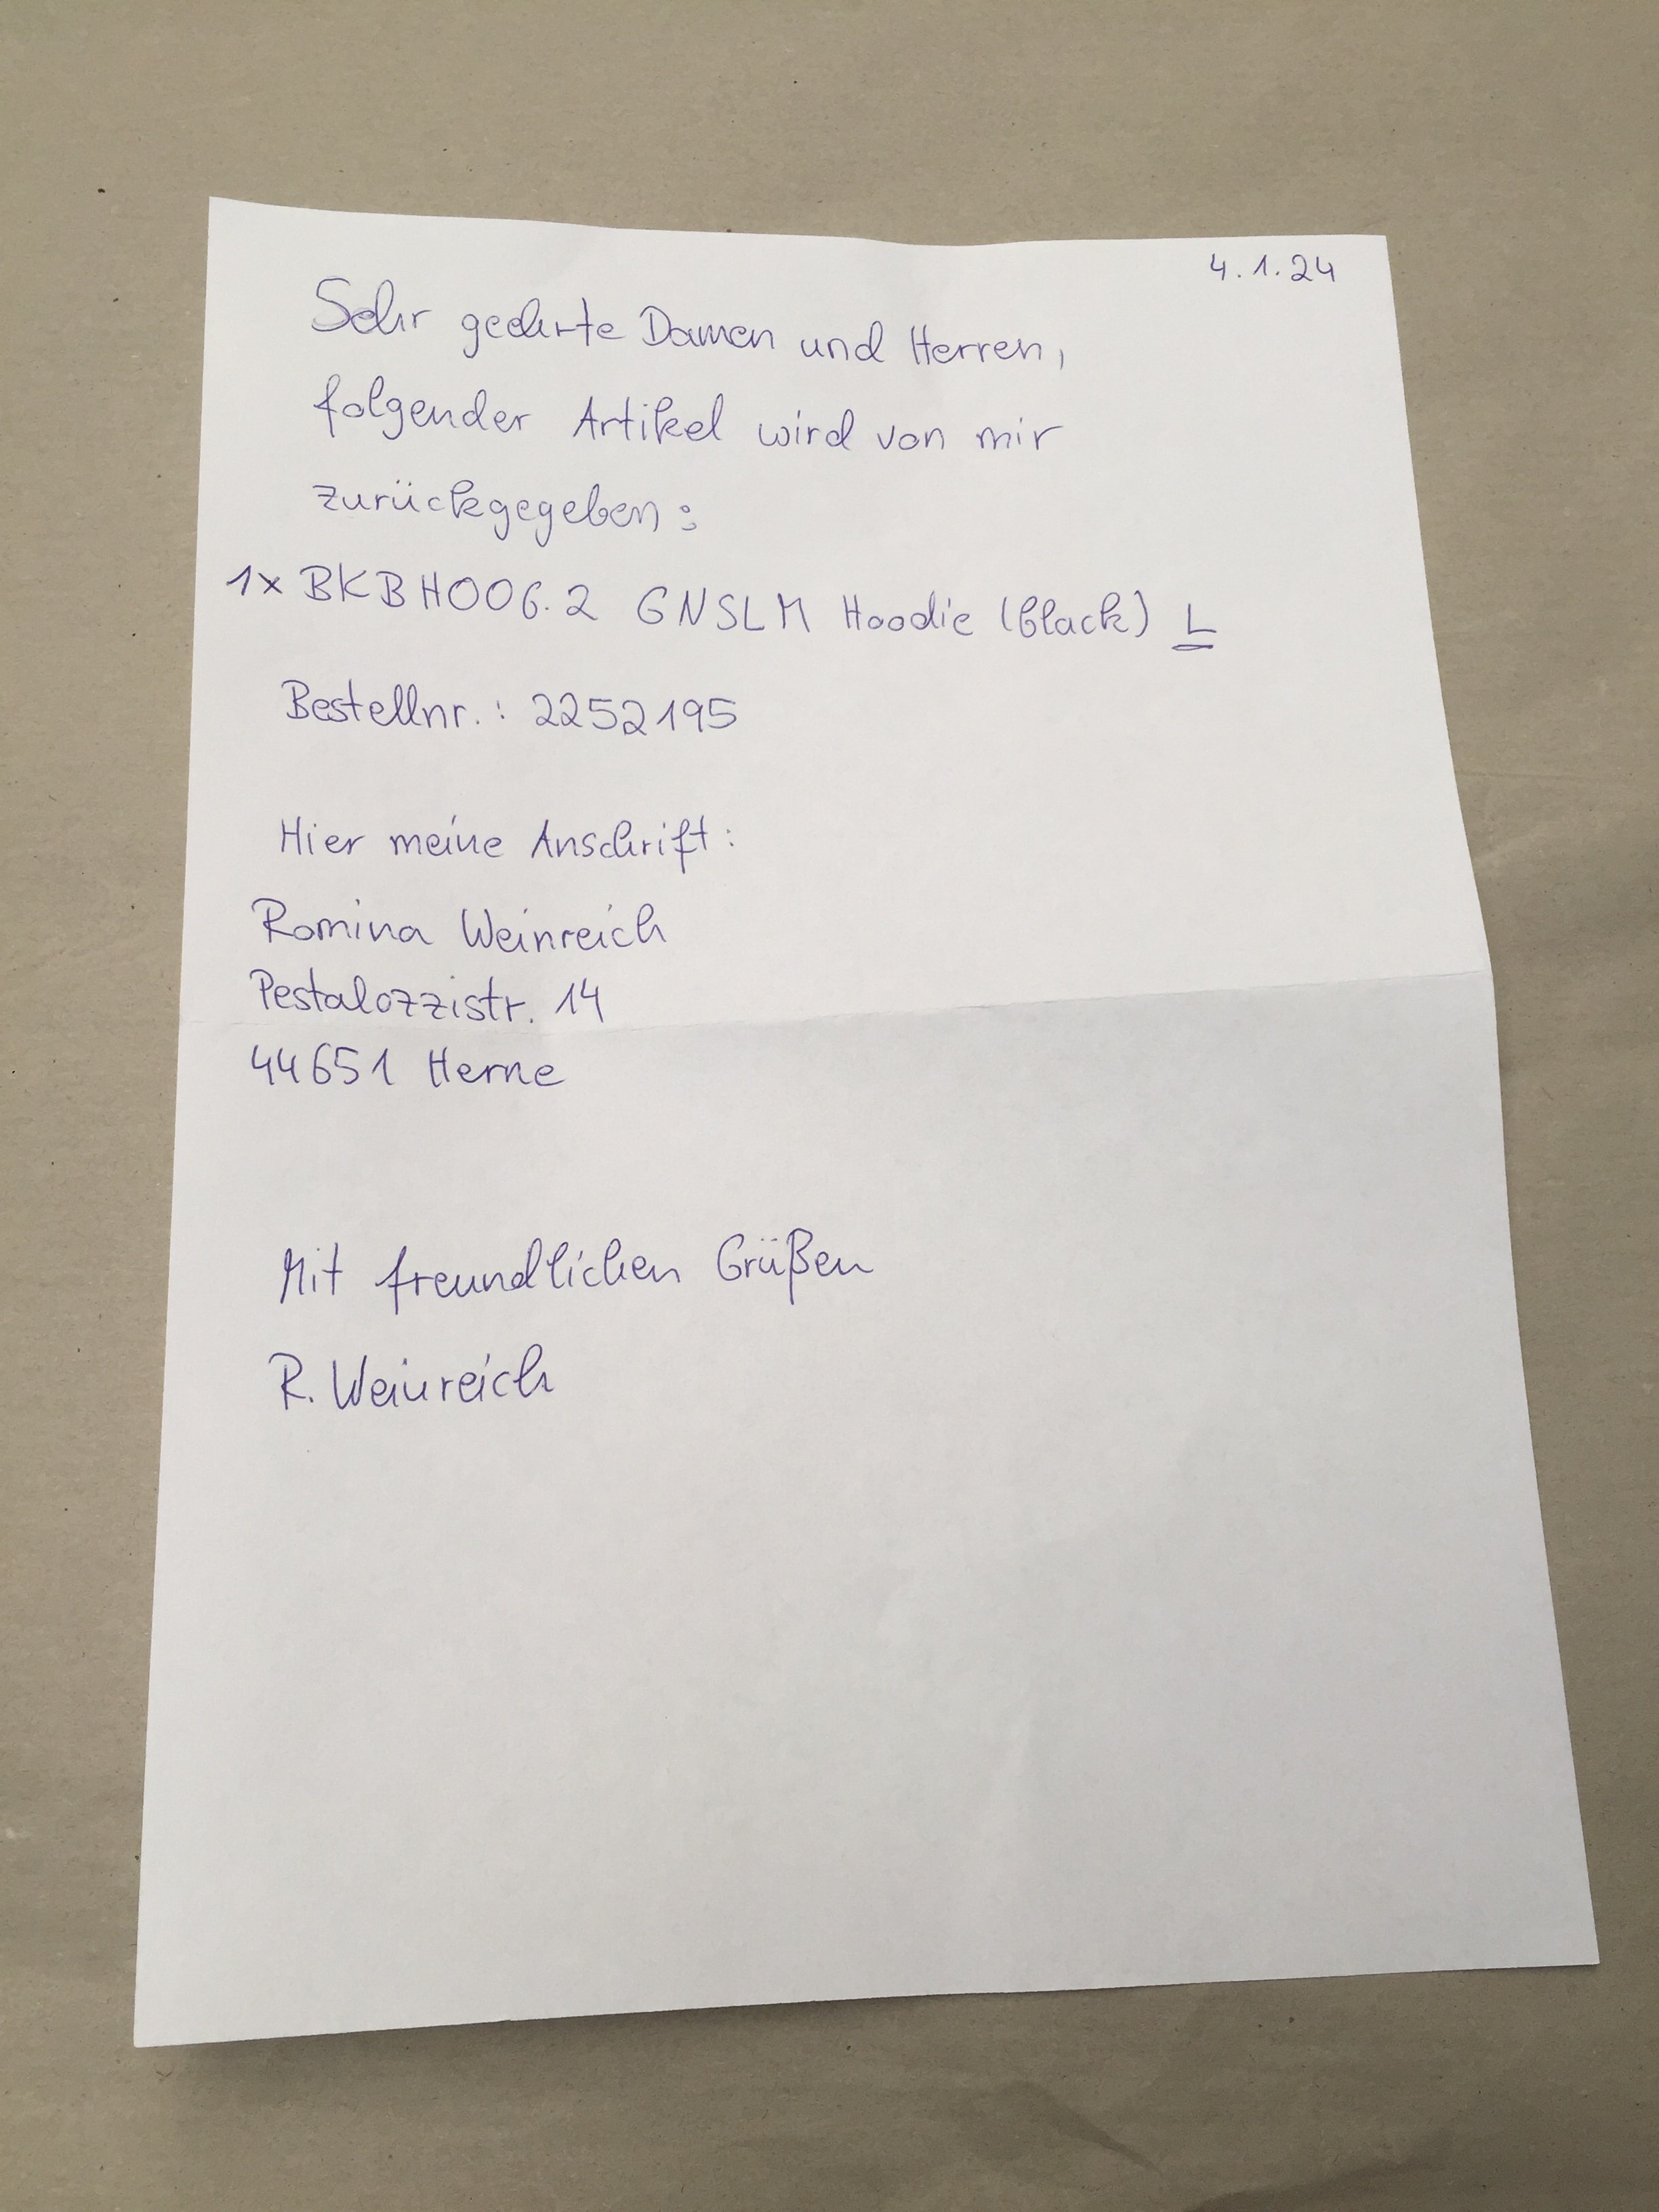 4.1.24
Sehr geehrte Damen und Herren,
folgender Artikel wird von mir
zurückgegeben:
1x BKBHOO6.2 GNSLM Hoodie (black) L
Bestellnr.: 2252195
Hier meine Anschrift:
Romina Weinreich
Pestalozzistr. 14
44651 Herne
Mit freundlichen Grüßen
R. Weinreich